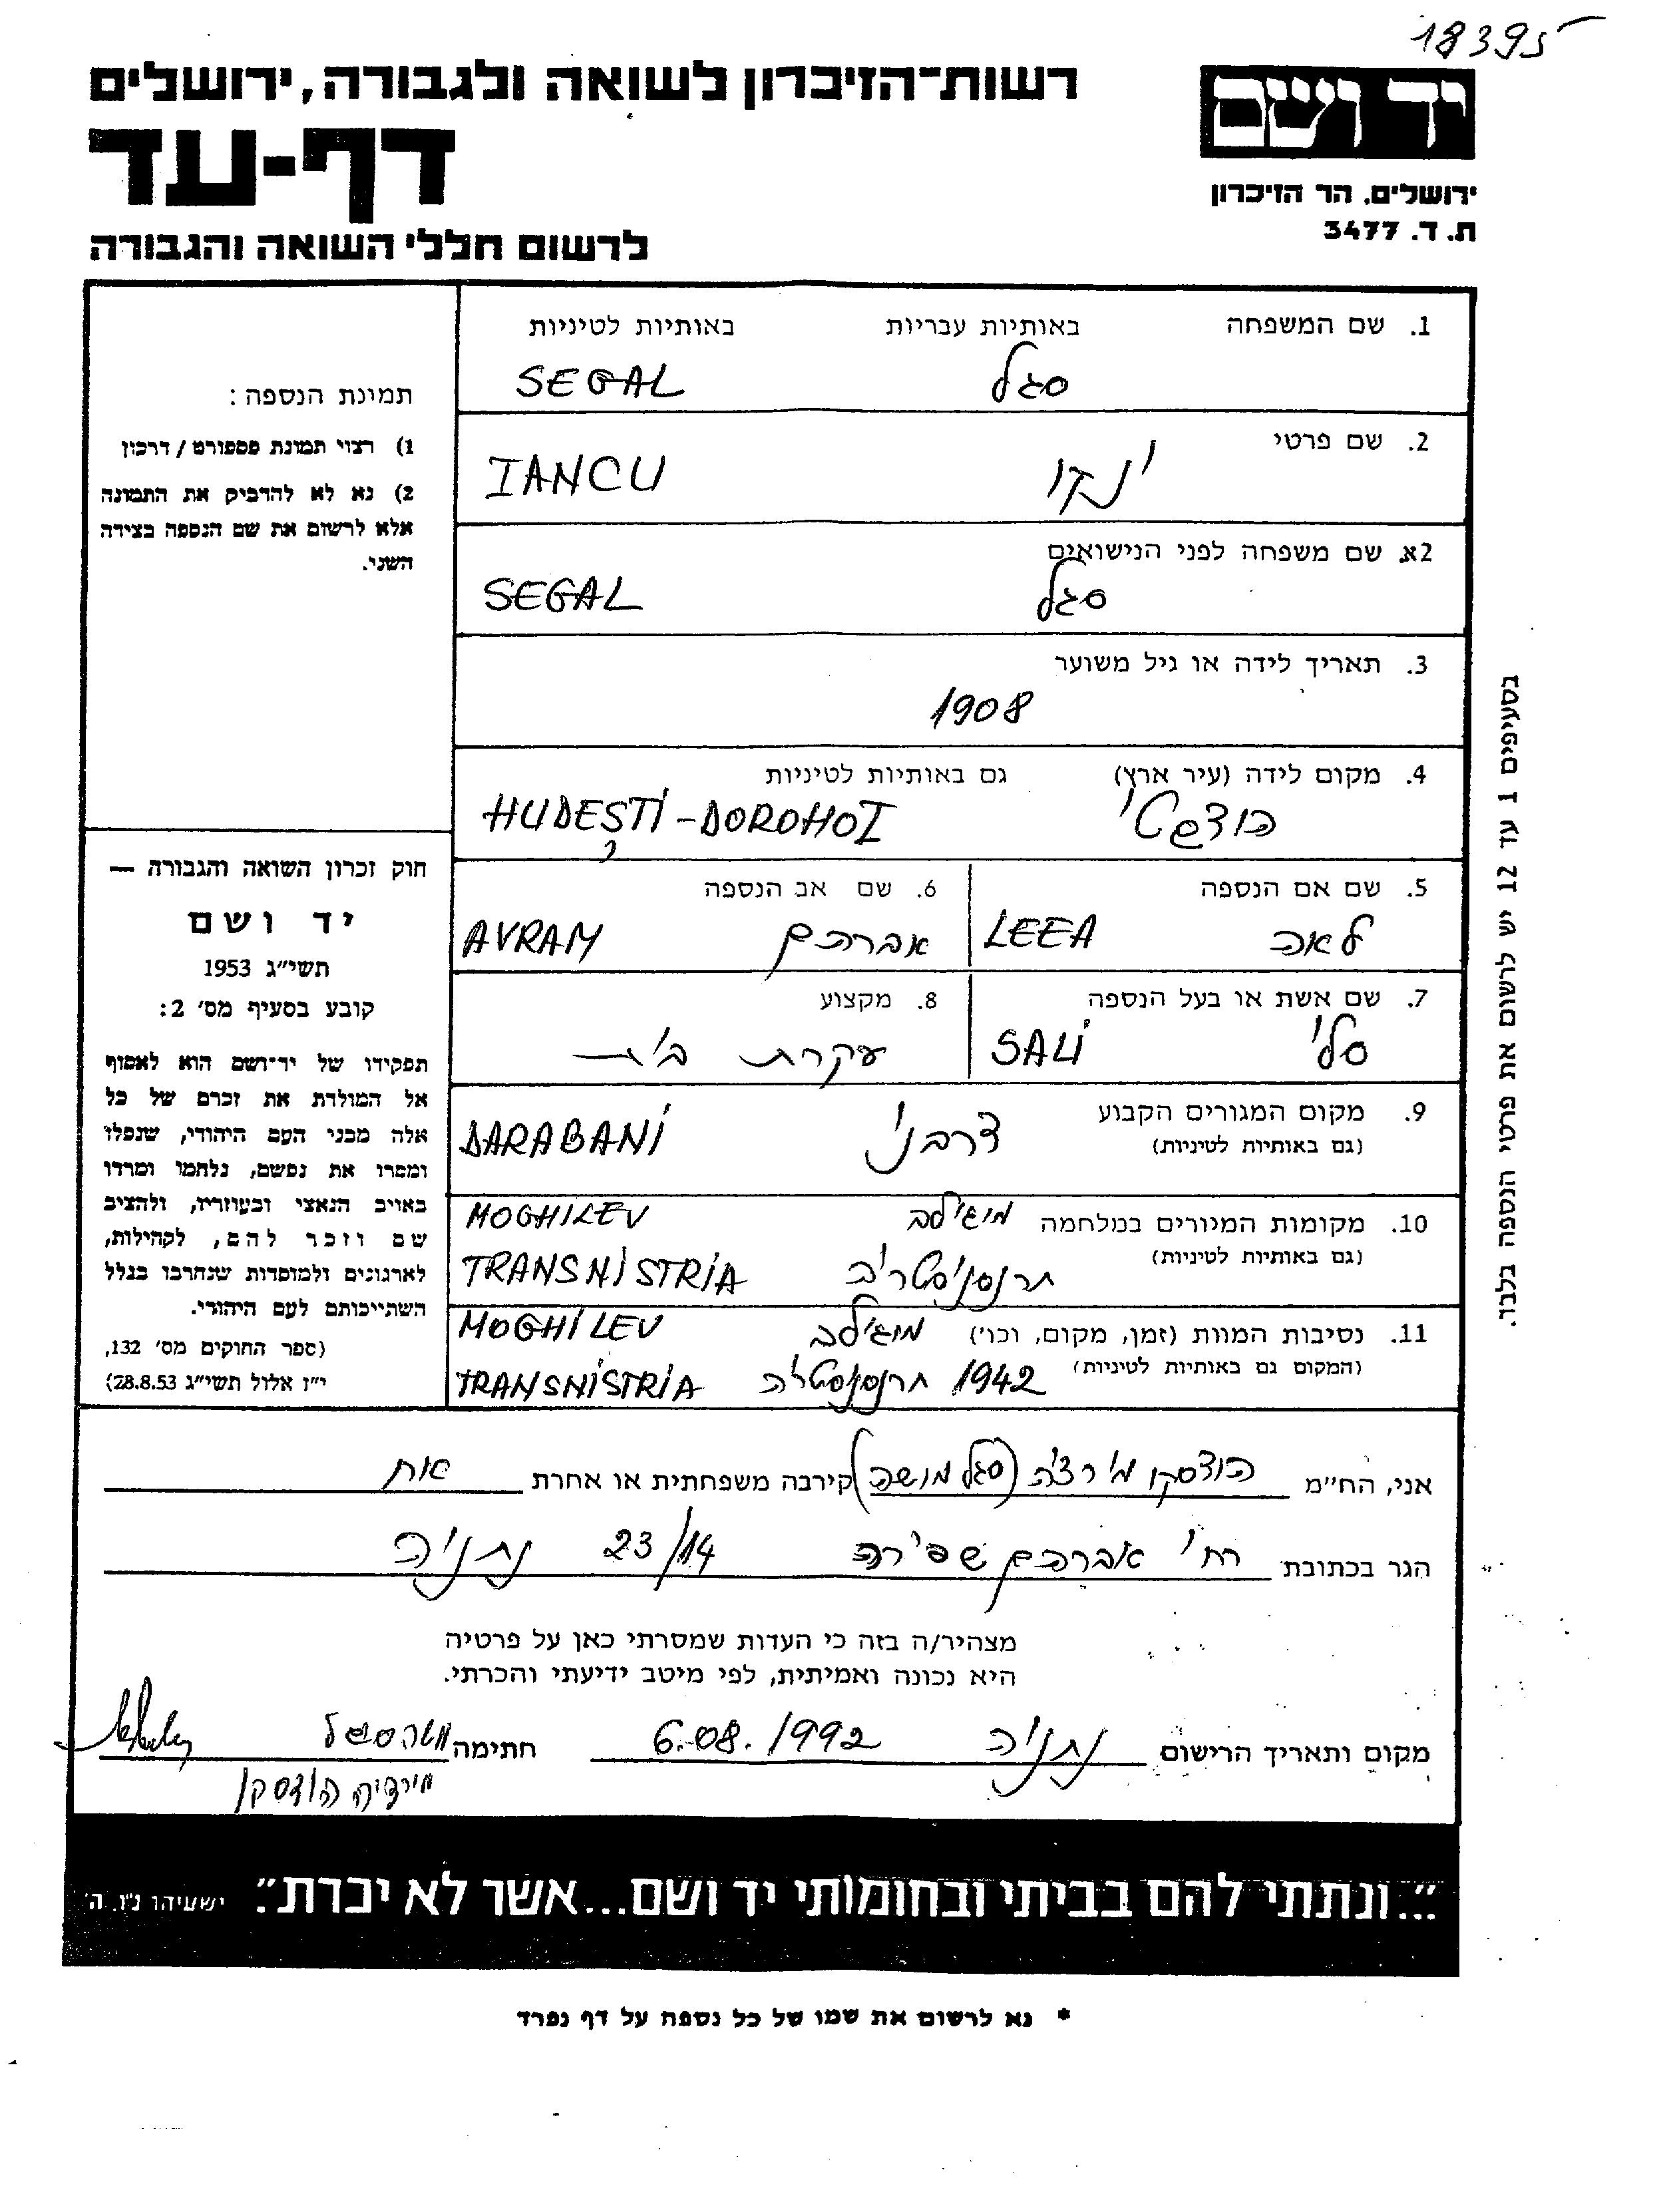 18395
רשות־הזיכרון לשואה ולגבורה, ירושלים
דף-עד
לרשום חללי השואה והגבורה
יד ושם
ירושלים, הר הזיכרון
ת. ד. 3477
1. שם המשפחה באותיות עבריות באותיות לטיניות
סגל SEGAL
2. שם פרטי
ינקו IANCU
2א. שם משפחה לפני הנישואים
סגל SEGAL
3. תאריך לידה או גיל משוער
1908
4. מקום לידה (עיר ארץ) גם באותיות לטיניות
הודשטי HUDEȘTI-DOROHOI
5. שם אם הנספה
לאה LEEA
6. שם אב הנספה
אברהם AVRAM
7. שם אשת או בעל הנספה
סלי SALI
8. מקצוע
עקרת בית
9. מקום המגורים הקבוע
(גם באותיות לטיניות)
דרבני DARABANI
10. מקומות המגורים במלחמה מוגילב MOGHILEV
(גם באותיות לטיניות) TRANSNISTRIA
11. נסיבות המוות (זמן, מקום, וכו') מוגילב MOGHILEV
(המקום גם באותיות לטיניות) 1942 TRANSNISTRIA
תמונת הנספה:
1) רצוי תמונת פספורט / דרכון
2) נא לא להדביק את התמונה
אלא לרשום את שם הנספה בצידה
השני.
חוק זכרון השואה והגבורה —
יד ושם
תשי"ג 1953
קובע בסעיף מס' 2:
תפקידו של יד־ושם הוא לאסוף
אל המולדת את זכרם של כל
אלה מבני העם היהודי, שנפלו
ומסרו את נפשם, נלחמו ומרדו
באויב הנאצי ובעוזריו, ולהציב
שם וזכר להם, לקהילות,
לארגונים ולמוסדות שנחרבו בגלל
השתייכותם לעם היהודי.
(ספר החוקים מס' 132,
י"ז אלול תשי"ג 28.8.53)
בסעיפים 1 עד 12 יש לרשום את פרטי הנספה בלבד.
אני, הח"מ הודסקו מירצה (סגל מושה) קירבה משפחתית או אחרת אח
הגר בכתובת רח' אברהם שפירה 23/14 נתניה
מצהיר/ה בזה כי העדות שמסרתי כאן על פרטיה
היא נכונה ואמיתית, לפי מיטב ידיעתי והכרתי.
מקום ותאריך הרישום נתניה 6.08.1992 חתימה
הודסקו
"...ונתתי להם בביתי ובחומותי יד ושם...אשר לא יכרת". ישעיהו נ"ו, ה'
* נא לרשום את שמו של כל נספה על דף נפרד